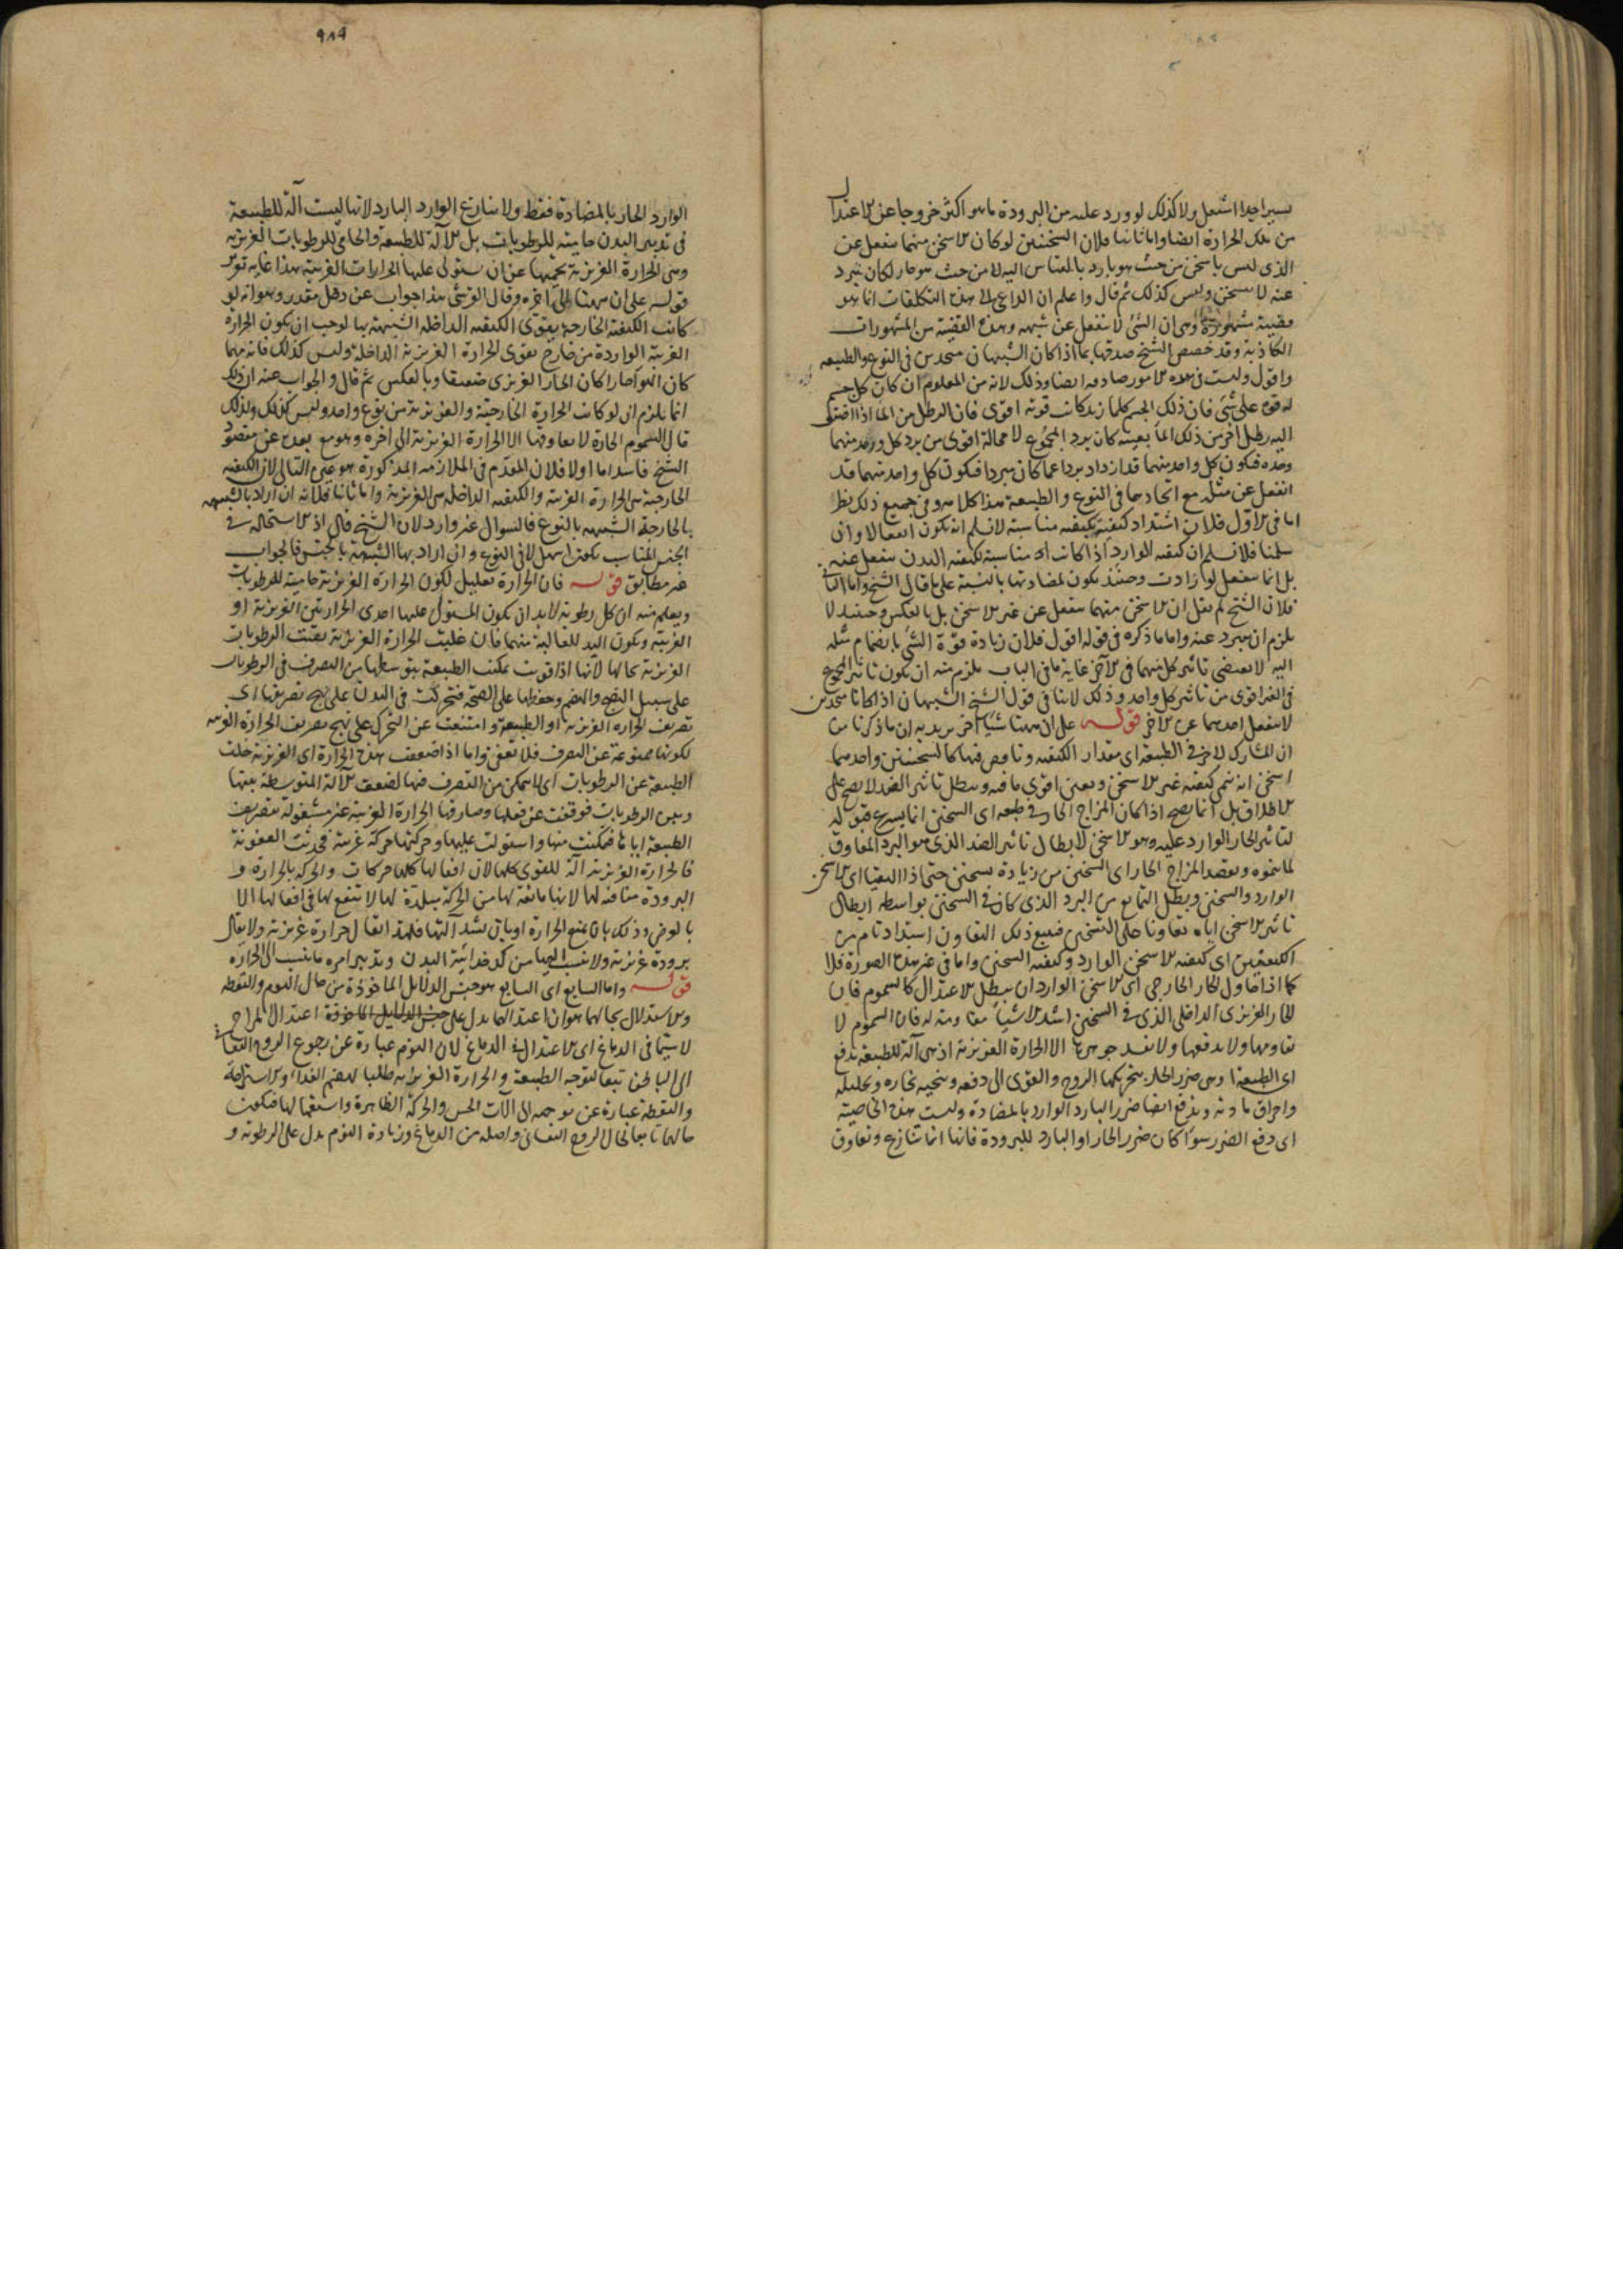 يسيرا جدا اشتعل ولا كذلك لو ورد عليه من البرودة ما هو اكثر خروجا عن الاعتدال
من تلك الحرارة ايضا واما ثانيا فلان السخنين لو كان الاسخن منهما ينفعل عن
الذى ليس باسخن من حيث هو بارد بالقياس اليه لا من حيث هو حار لكان يبرد
عنه لا يتسخن وليس كذلك ثم قال واعلم ان الداعى الى هذه التكلفات انما هو
قضية مشهورة وهى ان الشئ لا ينفعل عن شبهه وهذه القضية من المشهورات
الكاذبة وقد خصص الشيخ صدقها بما اذا كان الشبيهان متحدين فى النوع والطبيعه
واقول وليست فى هذه الامور صادقه ايضا وذلك لانه من المعلوم ان كان كل جسم
له قوة على شئ فان ذلك الجسم كلما زيد كانت قوته اقوى فان الرطل من الماء اذا اضيف
اليه رطل اخر من ذلك الماء بعينه كان برد المجموع لا محالة اقوى من برد كل واحد منهما
وحده فيكون كل واحد منهما قد ازداد بردا عما كان مبردا فيكون كل واحد منهما قد
انفعل عن مثله مع اتحادهما فى النوع والطبيعة هذا كلامه وفى جميع ذلك نظر
اما فى الاول فلان اشتداد كيفية بكيفيه مناسبة لا نسلم انه يكون انفعالا وان
سلمنا فلا نسلم ان كيفيه الوارد اذا كانت مناسبة لكيفيه البدن ينفعل عنه
بل انما ينفعل لو ازادت وحينئذ يكون لمضادتها بالنسبة على ما قال الشيخ واما الثانى
فلان الشيخ لم يقل ان الاسخن منهما ينفعل عن غير الاسخن بل بالعكس وحينئذ لا
يلزم ان يبرد عنه واما ما ذكره فى قوله اقول فلان زيادة قوة الشئ بانضمام مثله
اليه لا يقتضى تاثير كل منهما فى الاخر غاية ما فى الباب يلزم منه ان يكون تاثير المجموع
فى الغير اقوى من تاثير كل واحد وذلك لا ينافى قول الشيخ الشبيهان اذا كانا متحدين
لا ينفعل احدهما عن الاخر قوله على ان ههنا شيئا اخر يريد به ان ما ذكرنا من
ان المشارك لاخر فى الطبيعة اى مقدار الكيفيه وناقص فيها كالسخنين واحدهما
اسخن انه ينمى كيفيته غير الاسخن ويعين اقوى ما فيه ويبطل تاثير الضد لا يصح على
الاطلاق بل انما يصح اذا كان المزاج الحار فى طبعه اى السخن انما يسرع قبوله
لتاثير الحار الوارد عليه وهو الاسخن لابطال تاثير الضد الذى هو البرد المعاوق
لما ينحوه ويقصد المزاج الحار اى السخن من زيادة تسخين حتى اذا التقيا اى الاسخن
الوارد والسخن وبطل المانع من البرد الذى كان فى السخن بواسطه ابطال
تاثير الاسخن اياه تعاونا على التسخين فيتبع ذلك التعاون اشتداد تام من
الكيفيتين اى كيفيه الاسخن الوارد وكيفيه السخن واما فى غير هذه الصورة فلا
كما اذا حاول الحار الخارجى اى الاسخن الوارد ان يبطل الاعتدال كالسموم فان
الحار الغريزى الداخلى الذى فى السخن اشد الاشياء مقاومة له فان السموم لا
يقاومها ولا يدفعها ولا يفسد جوهرها الا الحرارة الغريزية اذ هى آلة للطبيعة تدفع
اى الطبيعة ضرر الحار بتحريكها الروح والقوى الى دفعه وتنحيه بخاره وتحليله
واحراق مادته ويدفع ايضا ضرر البارد الوارد بالمضادة وليست هذه الخاصية
اى دفع الضرر سواء كان ضرر الحار او البارد للبرودة فانها انما تنازع وتعاوق
٩٨٩
الوارد الحار بالمضادة فقط ولا ينازع الوارد البارد لانها ليست آلة للطبيعة
فى تدبير البدن حامية للرطوبات بل الآلة للطبيعة والحامى للرطوبات الغريزيه
وهى الحرارة الغريزية تحميها عن ان يستولى عليها الحرارات الغريبة هذا غايه تقرير
قوله على ان ههنا الى اخره وقال القرشى هذا جواب عن دخل مقدر وهو انه لو
كانت الكيفية الخارجة يقوى الكيفيه الداخله الشبيهة بها لوجب ان يكون الحرارة
الغريبة الواردة من خارج تقوى الحرارة الغريزية الداخلة وليس كذلك فانه مهما
كان الهواء حارا كان الحار الغريزى ضعيفا وبالعكس ثم قال والجواب عنه ان ذلك
انما يلزم ان لو كانت الحرارة الخارجية والغريزية من نوع واحد وليس كذلك ولذلك
قال السموم الحارة لا يقاومها الا الحرارة الغريزية الى اخره وهو مع بعده عن مقصود
الشيخ فاسد اما اولا فلان المقدم فى الملازمه المذكورة هو عين التالى لان الكيفيه
الخارجية هى الحرارة الغريبة والكيفيه الداخله هى الغريزية واما ثانيا فلانه ان اراد بالشبيهه
بالخارجة الشبيهه بالنوع فالسوال غير وارد لان الشيخ قال اذ الاستحاله فى
الجنس المناسب يكون اسهل لا فى النوع وان اراد بها الشبيهة بالجنس فالجواب
غير مطابق قوله فان الحرارة تعليل لكون الحرارة الغريزية حامية للرطوبات
ويعلم منه ان كل رطوبة لا بد ان يكون المستولى عليها احدى الحرارتين الغريزية او
الغريبة ويكون اليد للغالبة منهما فان غلبت الحرارة الغريزية بقيت الرطوبات
الغريزية بحالها لانها اذا قويت تمكنت الطبيعة بتوسطها من التصرف فى الرطوبات
على سبيل النضج والهضم وحفظها على الصحة فتحركت فى البدن على نهج تصريفها اى
تصريف الحراره الغريزية او الطبيعة وامتنعت عن التحرك على نهج تصريف الحرارة الغريبه
لكونها ممنوعة عن التصرف فلا تعفن واما اذا ضعفت هذه الحرارة اى الغريزية خلت
الطبيعة عن الرطوبات اى لا يتمكن من التصرف فيها لضعف الآلة المتوسطة بينها
وبين الرطوبات فوقفت عن فعلها وصادفها الحرارة الغريبة غير مشغولة بتصريف
الطبيعة اياها فتمكنت منها واستولت عليها وحركتها حركة غريبة فحدثت العفونة
فالحرارة الغريزية آلة للقوى كلها لان افعالها كلها حركات والحركه بالحرارة و
البرودة منافيه لها لانها مانعه لها من الحركة مبلدة لها لا تنفع لها فى افعالها الا
بالعرض وذلك بان يمنع الحرارة او بان يشد آلتها فلهذا يقال حرارة غريزية ولا يقال
برودة غريزية ولا ينسب اليها من كدخدائية البدن وتدبير امره ما ينسب الى الحرارة
قوله واما السابع اى السابع هو جنس الدلائل الماخوذة من حال النوم واليقظه
والاستدلال بحالهما هو ان اعتدالهما يدل على جنس الدلائل الماخوذة اعتدال المزاج
لا سيما فى الدماغ اى الاعتدال فى الدماغ لان النوم عبارة عن رجوع الروح النفسانى
الى الباطن تبعا لتوجه الطبيعة والحرارة الغريزيه طلبا لهضم الغداء والاستراحة
واليقظة عبارة عن توجهه الى آلات الحس والحركة الظاهرة واستعمالها فتكون
حالهما تابعا لحال الروح النفسانى واصله من الدماغ وزيادة النوم يدل على الرطوبة و